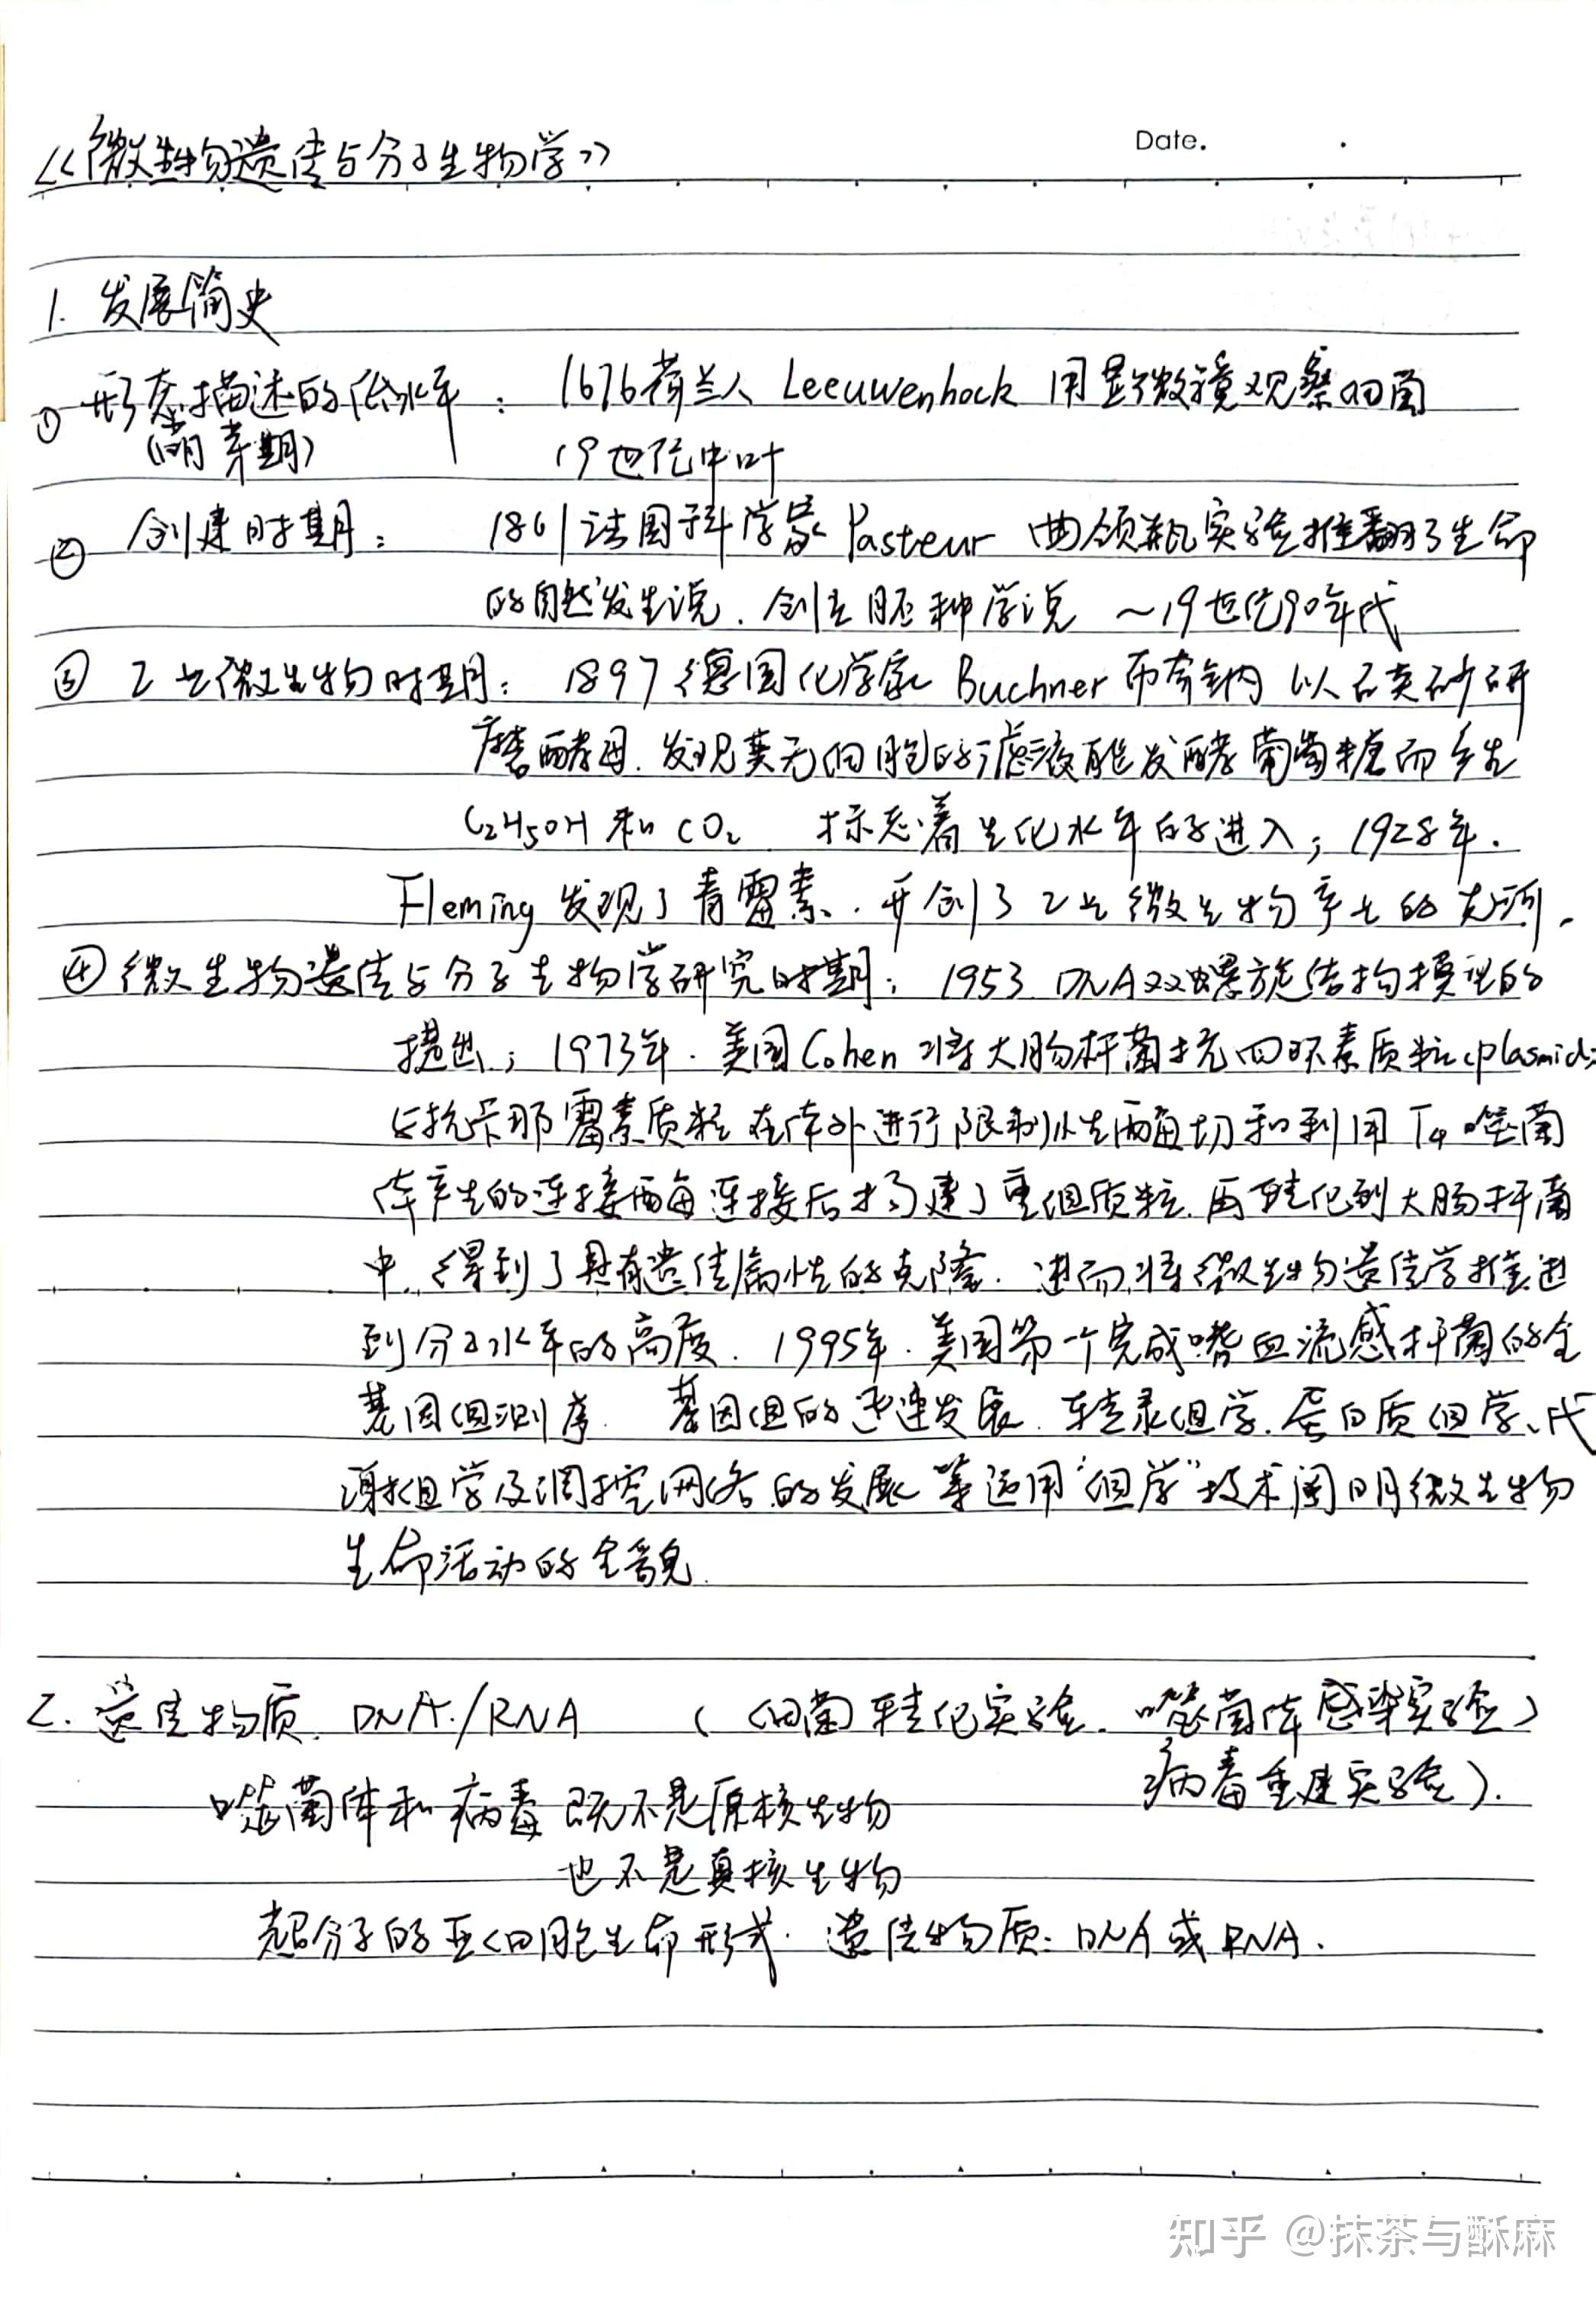 《微生物遗传与分子生物学》
Date.
1. 发展简史
① 形态描述的低水平 : 1676荷兰人 Leeuwenhock 用显微镜观察细菌
(萌芽期) 19世纪中叶
② 创建时期: 1861法国科学家 Pasteur 曲颈瓶实验推翻了生命
的自然发生说. 创立胚种学说 ~19世纪90年代
③ 工业微生物时期: 1897德国化学家 Buchner 布奇纳 以石英砂研
磨酵母. 发现其无细胞的滤液能发酵葡萄糖而产生
C₂H₅OH 和 CO₂ 标志着生化水平的进入; 1928年.
Fleming 发现了青霉素. 开创了工业微生物产业的先河.
④ 微生物遗传与分子生物学研究时期: 1953 DNA双螺旋结构模型的
提出; 1973年. 美国Cohen 将大肠杆菌抗四环素质粒(plasmid)
与抗卡那霉素质粒在体外进行限制性酶切和利用 T₄ 噬菌
体产生的连接酶连接后构建了重组质粒. 再转化到大肠杆菌
中. 得到了具有遗传属性的克隆. 进而将微生物遗传学推进
到分子水平的高度. 1995年. 美国第一个完成嗜血流感杆菌的全
基因组测序. 基因组的迅速发展. 转录组学. 蛋白质组学、代
谢组学及调控网络的发展 等运用"组学"技术阐明微生物
生命活动的全貌.
2. 遗传物质. DNA./RNA ( 细菌转化实验. 噬菌体感染实验)
病毒重建实验).
噬菌体和病毒 既不是原核生物
也不是真核生物
超分子的亚细胞生命形式. 遗传物质: DNA或RNA.
知乎 @抹茶与酥麻